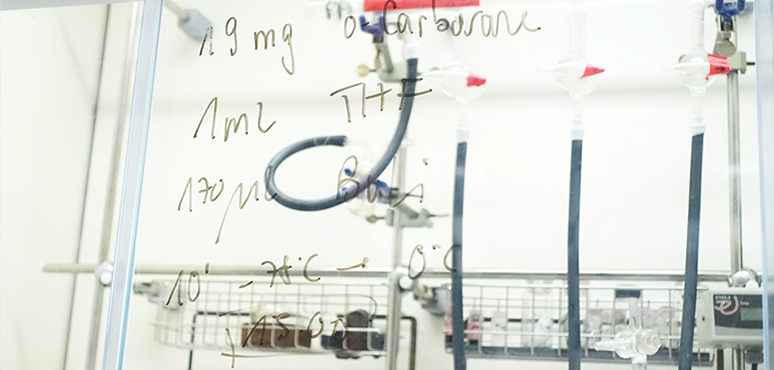 19 mg o-Carborane
1 mL THF
170 µL BuLi
10' -78°C → 0°C